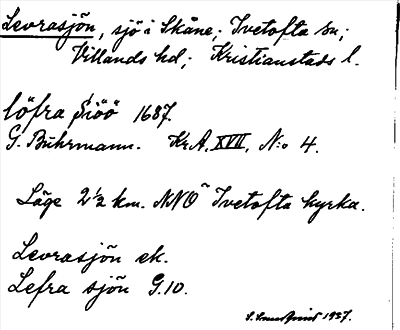 Levrasjön, sjö i Skåne; Ivetofta sn;
Villands hd; Kristianstads l.
löfra Siöö 1687.
G. Buhrmann. Kr.A. XVII, N:o 4.
Läge 2½ km. NNO Ivetofta kyrka.
Levrasjön ek.
Lefra sjön G.10.
1927.